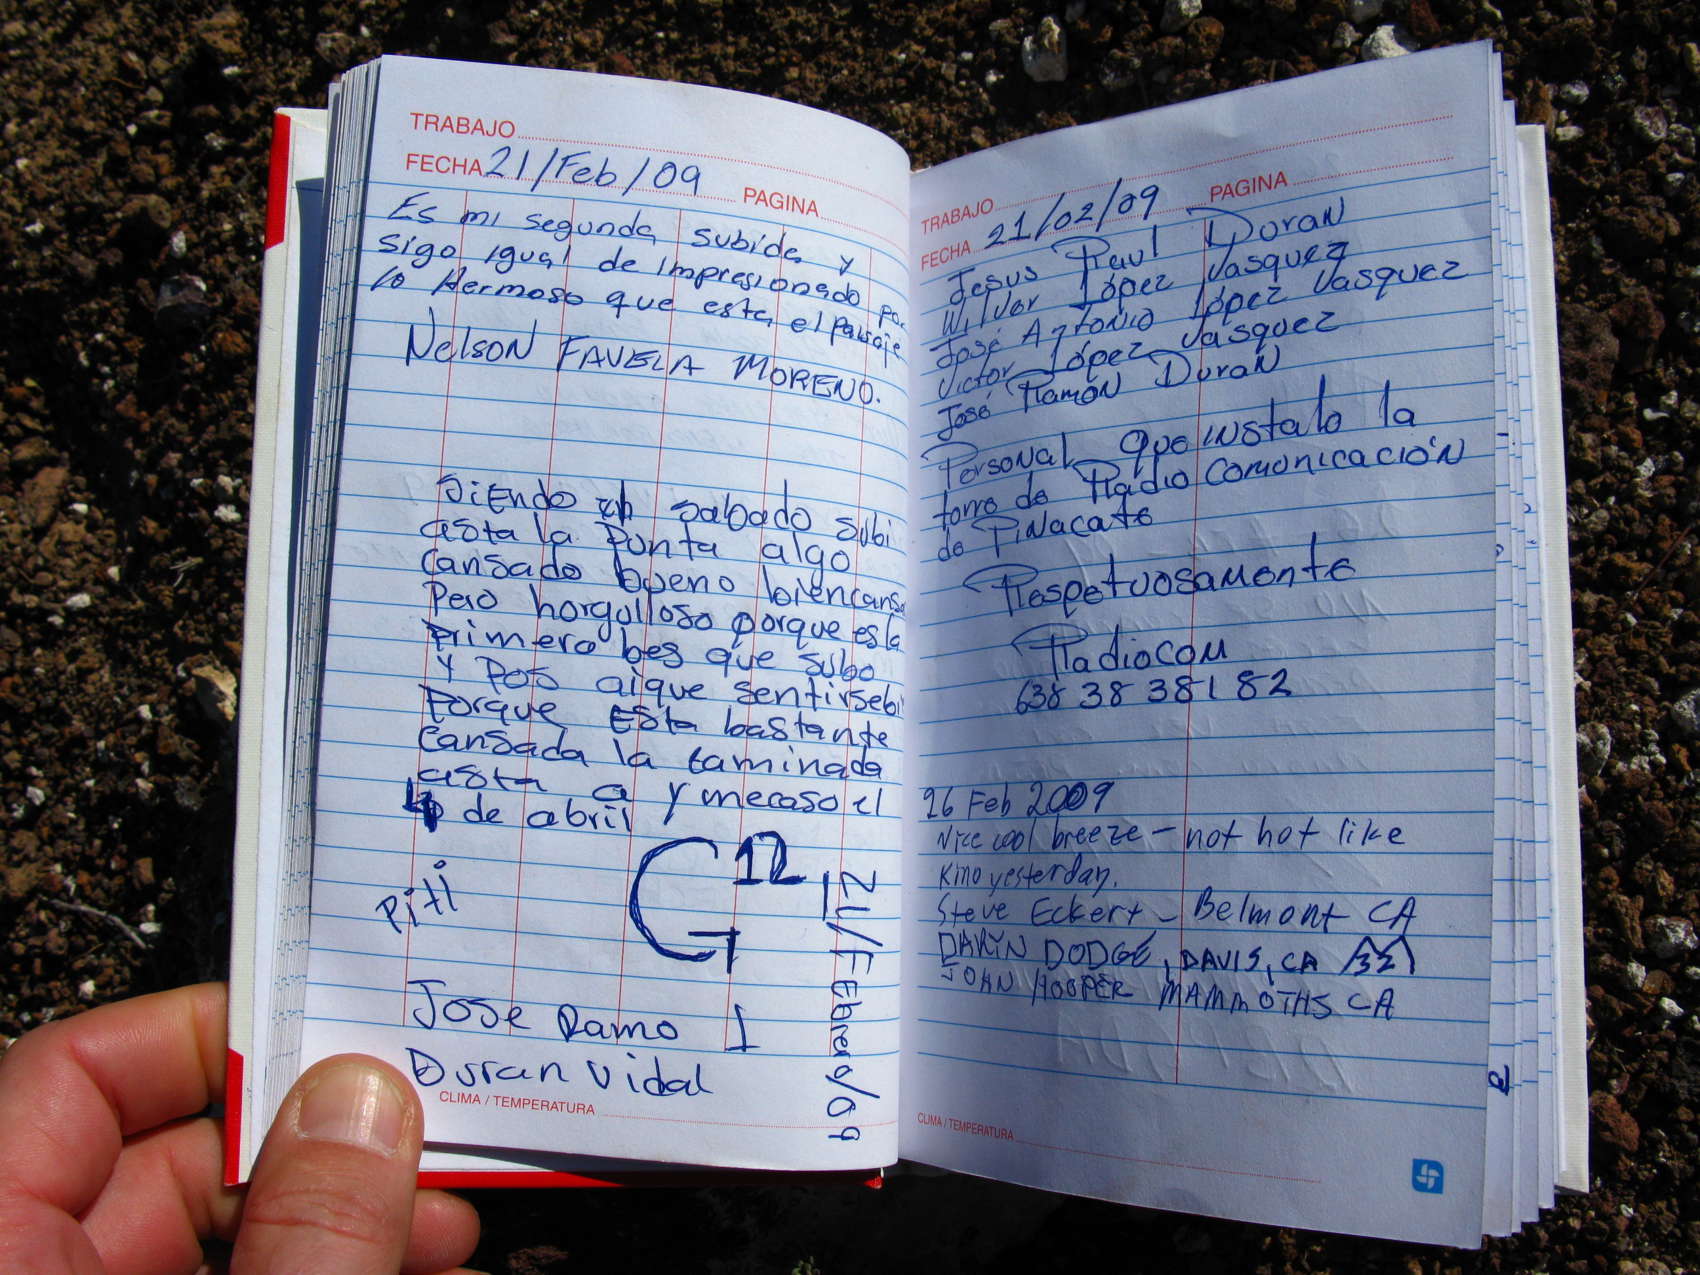 TRABAJO
FECHA 21/Feb/09 PAGINA
Es mi segunda subida y
sigo igual de impresionado por
lo Hermoso que esta el paisaje
Nelson FAVELA MORENO.
Siendo sabado subi
asta la Punta algo
cansado bueno biencansa
Pero horgulloso porque es la
primera bes que subo
y pos aique sentirsebi
Porque Esta bastante
cansada la caminada
asta a y mecaso el
4 de abril
Piti
G 12
1
21/FEbrero/09
Jose Ramo
Duran Vidal
CLIMA / TEMPERATURA
TRABAJO
FECHA 21/02/09 PAGINA
Jesus Raul Duran
Wilver López Vasquez
José Antonio López Vasquez
Victor López Vasquez
José Ramón Duran
Personal que instalo la
torre de Radio comunicación
de Pinacate
Respetuosamente
Radiocom
638 38 381 82
26 Feb 2009
Nice cool breeze - not hot like
Kino yesterday.
Steve Eckert - Belmont CA
DARYN DODGE, DAVIS, CA 32
JOHN HOOPER MAMMOTHS CA
CLIMA / TEMPERATURA